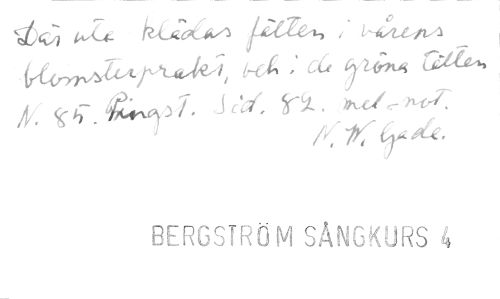 Där ute klädas fälten i vårens
blomsterprakt, och i de gröna tälten
N. 85. Pingst. Sid. 82. mel-not.
N. W. Gade.
BERGSTRÖM SÅNGKURS 4